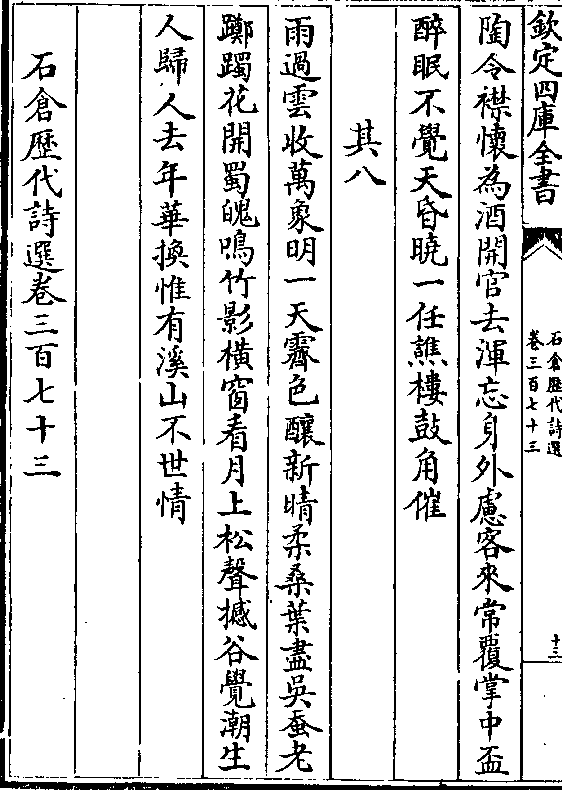 欽定四庫全書
石倉歴代詩選
卷三百七十三
十三
陶令襟懷為酒開官去渾忘身外慮客來常覆掌中盃
醉眠不覺天昏曉一任譙樓鼓角催
其八
雨過雲收萬象明一天霽色釀新晴柔桑葉盡吳蚕老
躑躅花開蜀魄鳴竹影橫窗看月上松聲撼谷覺潮生
人歸人去年華換惟有溪山不世情
石倉歴代詩選卷三百七十三